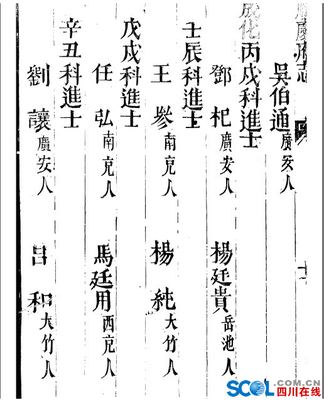 慶府志
吳伯通 廣安人
成化丙戌科進士
鄧杞 廣安人 楊廷貴 岳池人
壬辰科進士
王參 南充人 楊純 大竹人
戊戌科進士
任弘 南充人 馬廷用 西充人
辛丑科進士
劉讓 廣安人 呂和 大竹人
SCOL.COM.CN
四川在线